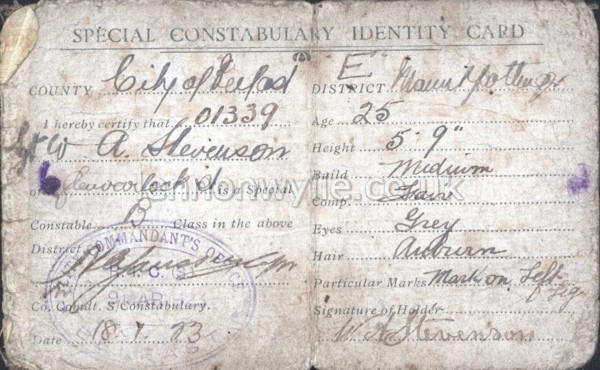 SPECIAL CONSTABULARY IDENTITY CARD
COUNTY City of Belfast "E" DISTRICT Mountpottinger
I hereby certify that 01339
W A. Stevenson
of is a Special
Constable B Class in the above
District
Co. Comdt. S Constabulary.
Date 18.7.23
COMMANDANT'S OFFICE
Age 25
Height 5-9"
Build Midium
Comp. Fair
Eyes Grey
Hair Auburn
Particular Marks Mark on Left
Leg
Signature of Holder
W. A. Stevenson
lennonwylie.co.uk